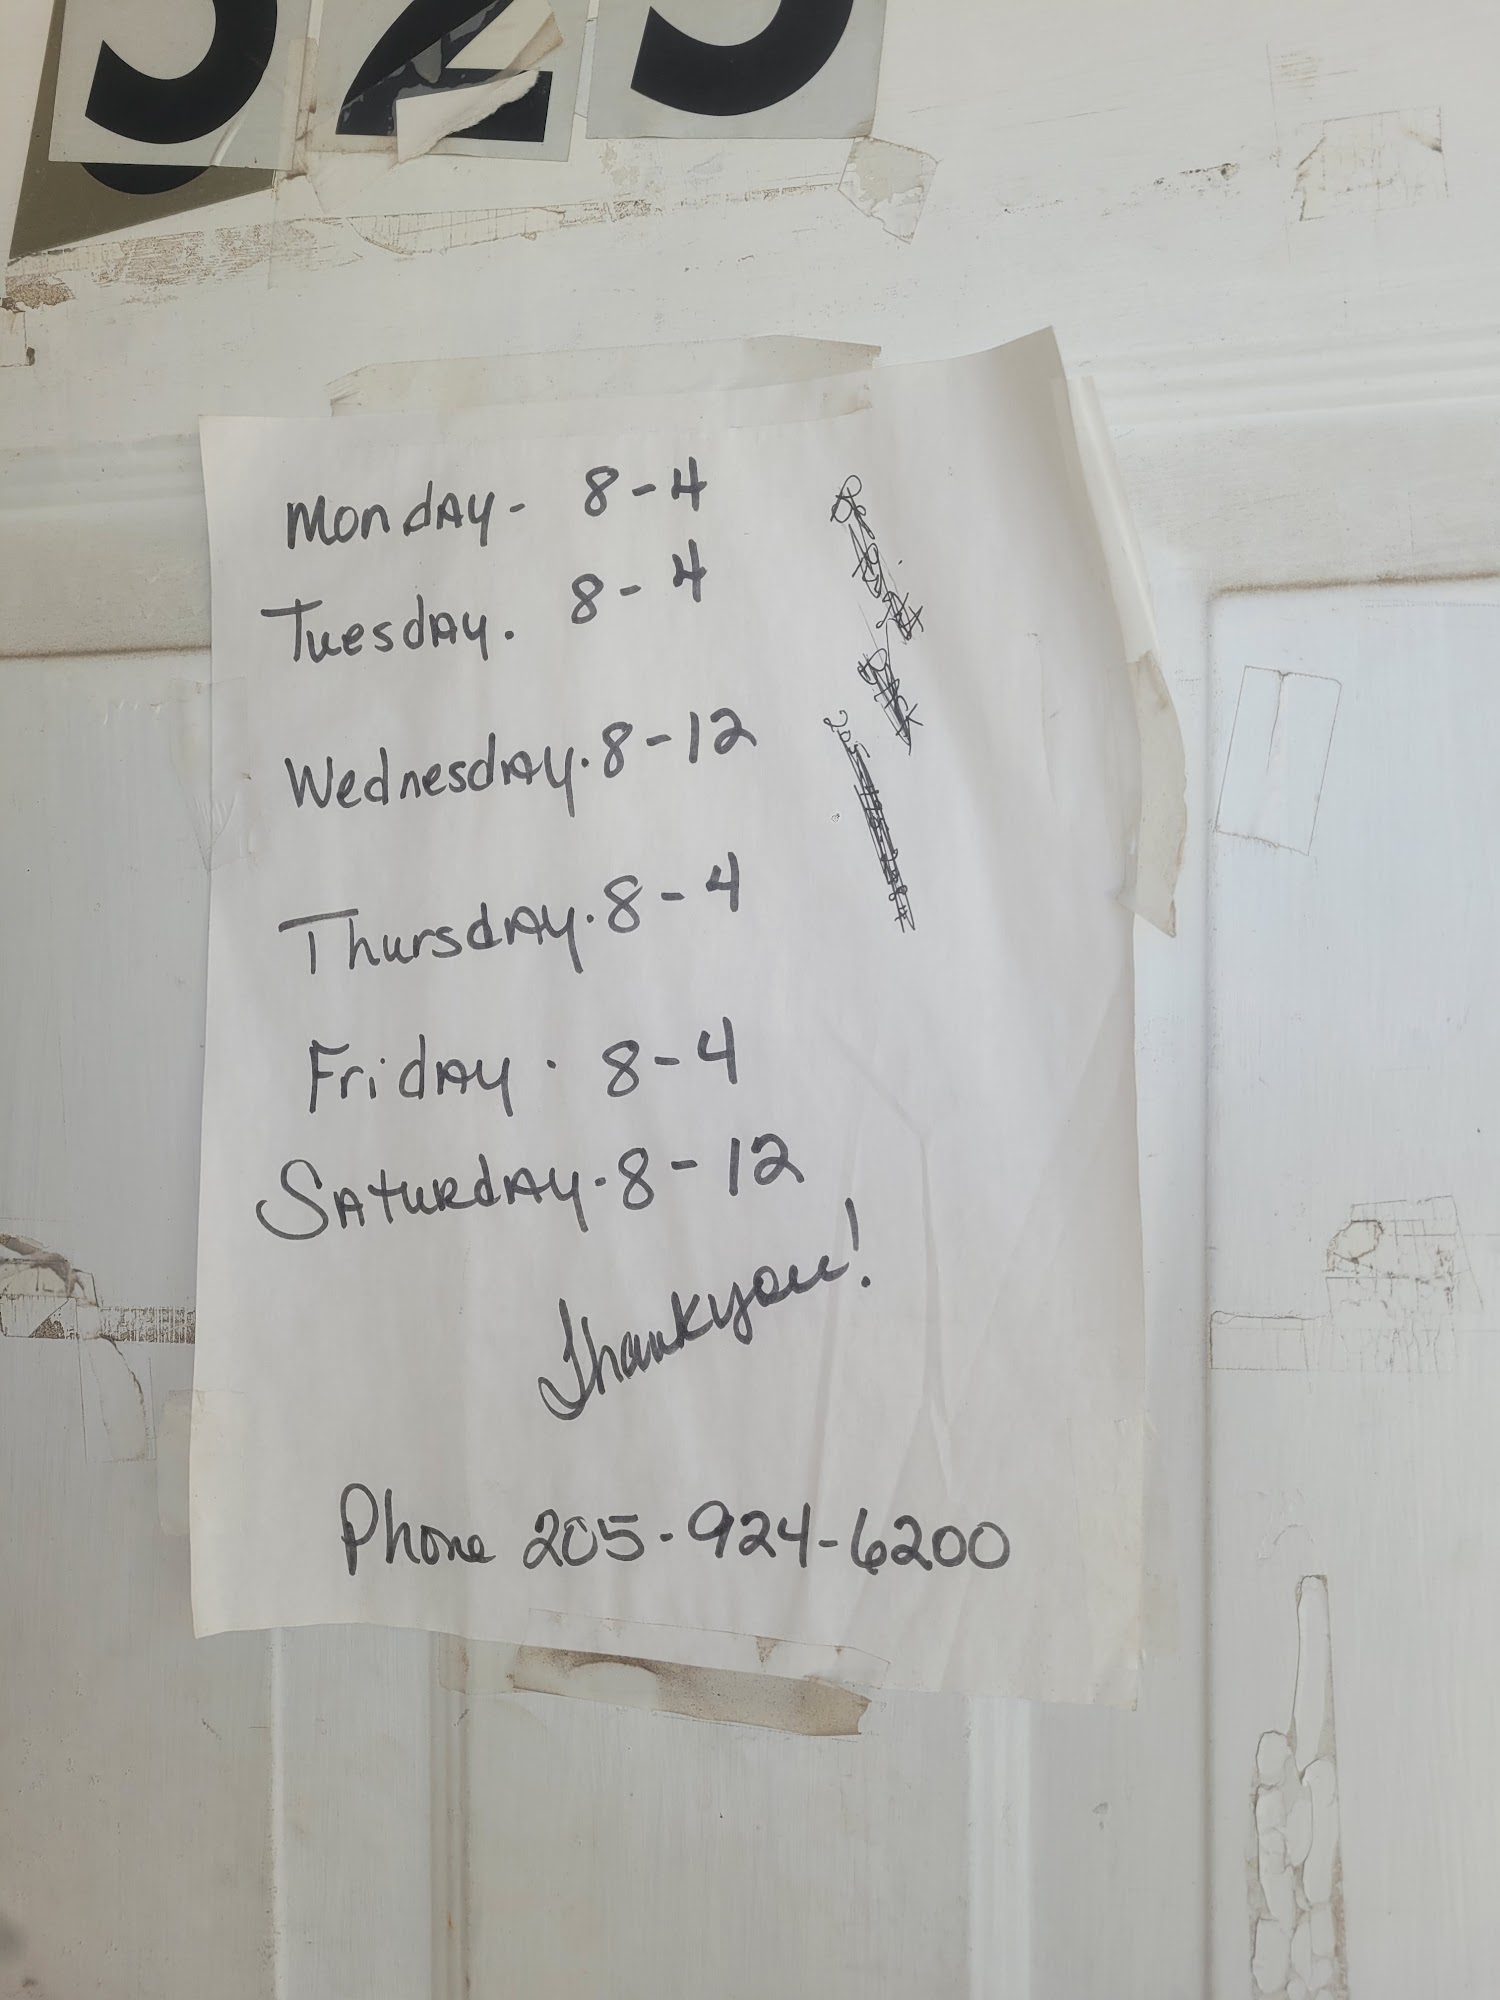 Monday - 8-4
Tuesday. 8-4
Wednesday. 8-12
Thursday. 8-4
Friday. 8-4
Saturday. 8-12
Thank you!
Phone 205-924-6200